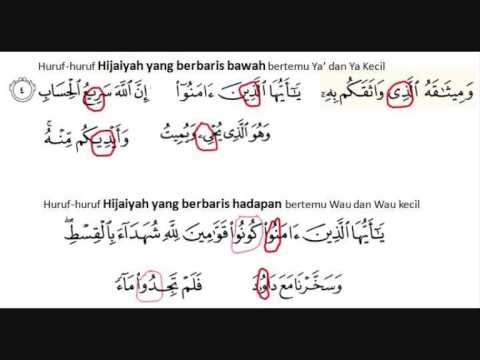 Huruf-huruf Hijaiyah yang berbaris bawah bertemu Ya' dan Ya Kecil
وَمِيثَٰقَهُ ٱلَّذِى وَاثَقَكُم بِهِۦٓ يَٰٓأَيُّهَا ٱلَّذِينَ ءَامَنُوٓا۟ إِنَّ ٱللَّهَ سَرِيعُ ٱلْحِسَابِ ٤
وَهُوَ ٱلَّذِى يُحْىِۦ وَيُمِيتُ وَأَيْدِيكُم مِّنْهُ ۚ
Huruf-huruf Hijaiyah yang berbaris hadapan bertemu Wau dan Wau kecil
يَٰٓأَيُّهَا ٱلَّذِينَ ءَامَنُوا۟ كُونُوا۟ قَوَّٰمِينَ لِلَّهِ شُهَدَآءَ بِٱلْقِسْطِ ۖ
وَسَخَّرْنَا مَعَ دَاوُۥدَ فَلَمْ تَجِدُوا۟ مَآءً